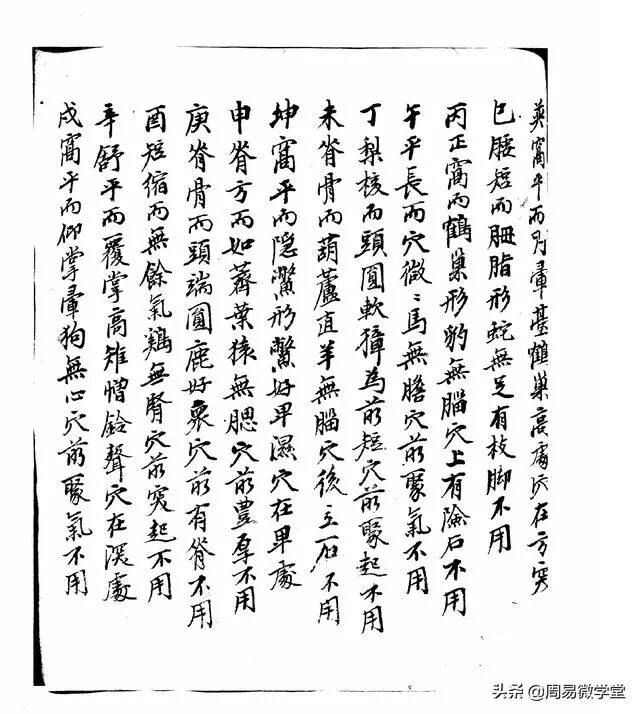 巽窩平而列暈甚鶴巢高處穴在方突
巳腰短而胭脂形蛇無足有枝脚不用
丙正窩而鶴巢形豹無腦穴上有險石不用
午平長而穴微〻馬無膽穴前聚氣不用
丁梨核而頭圓軟獐為前短穴前聚起不用
未脊骨而葫蘆直羊無腦穴後立石不用
坤窩平而隱鱉形鱉好卑濕穴在卑處
申脊方而如薺葉猿無腮穴前豊厚不用
庚脊骨而頭端圓鹿好衆穴前有脊不用
酉短縮而無餘氣鷄無腎穴前突起不用
辛舒平而覆掌高雉憎鈴聲穴在深處
戌窩平而仰掌暈狗無心穴前聚氣不用
头条@周易微学堂